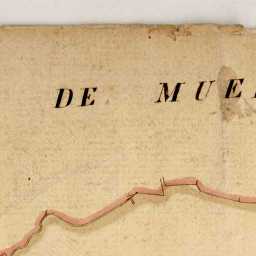 DE MUE